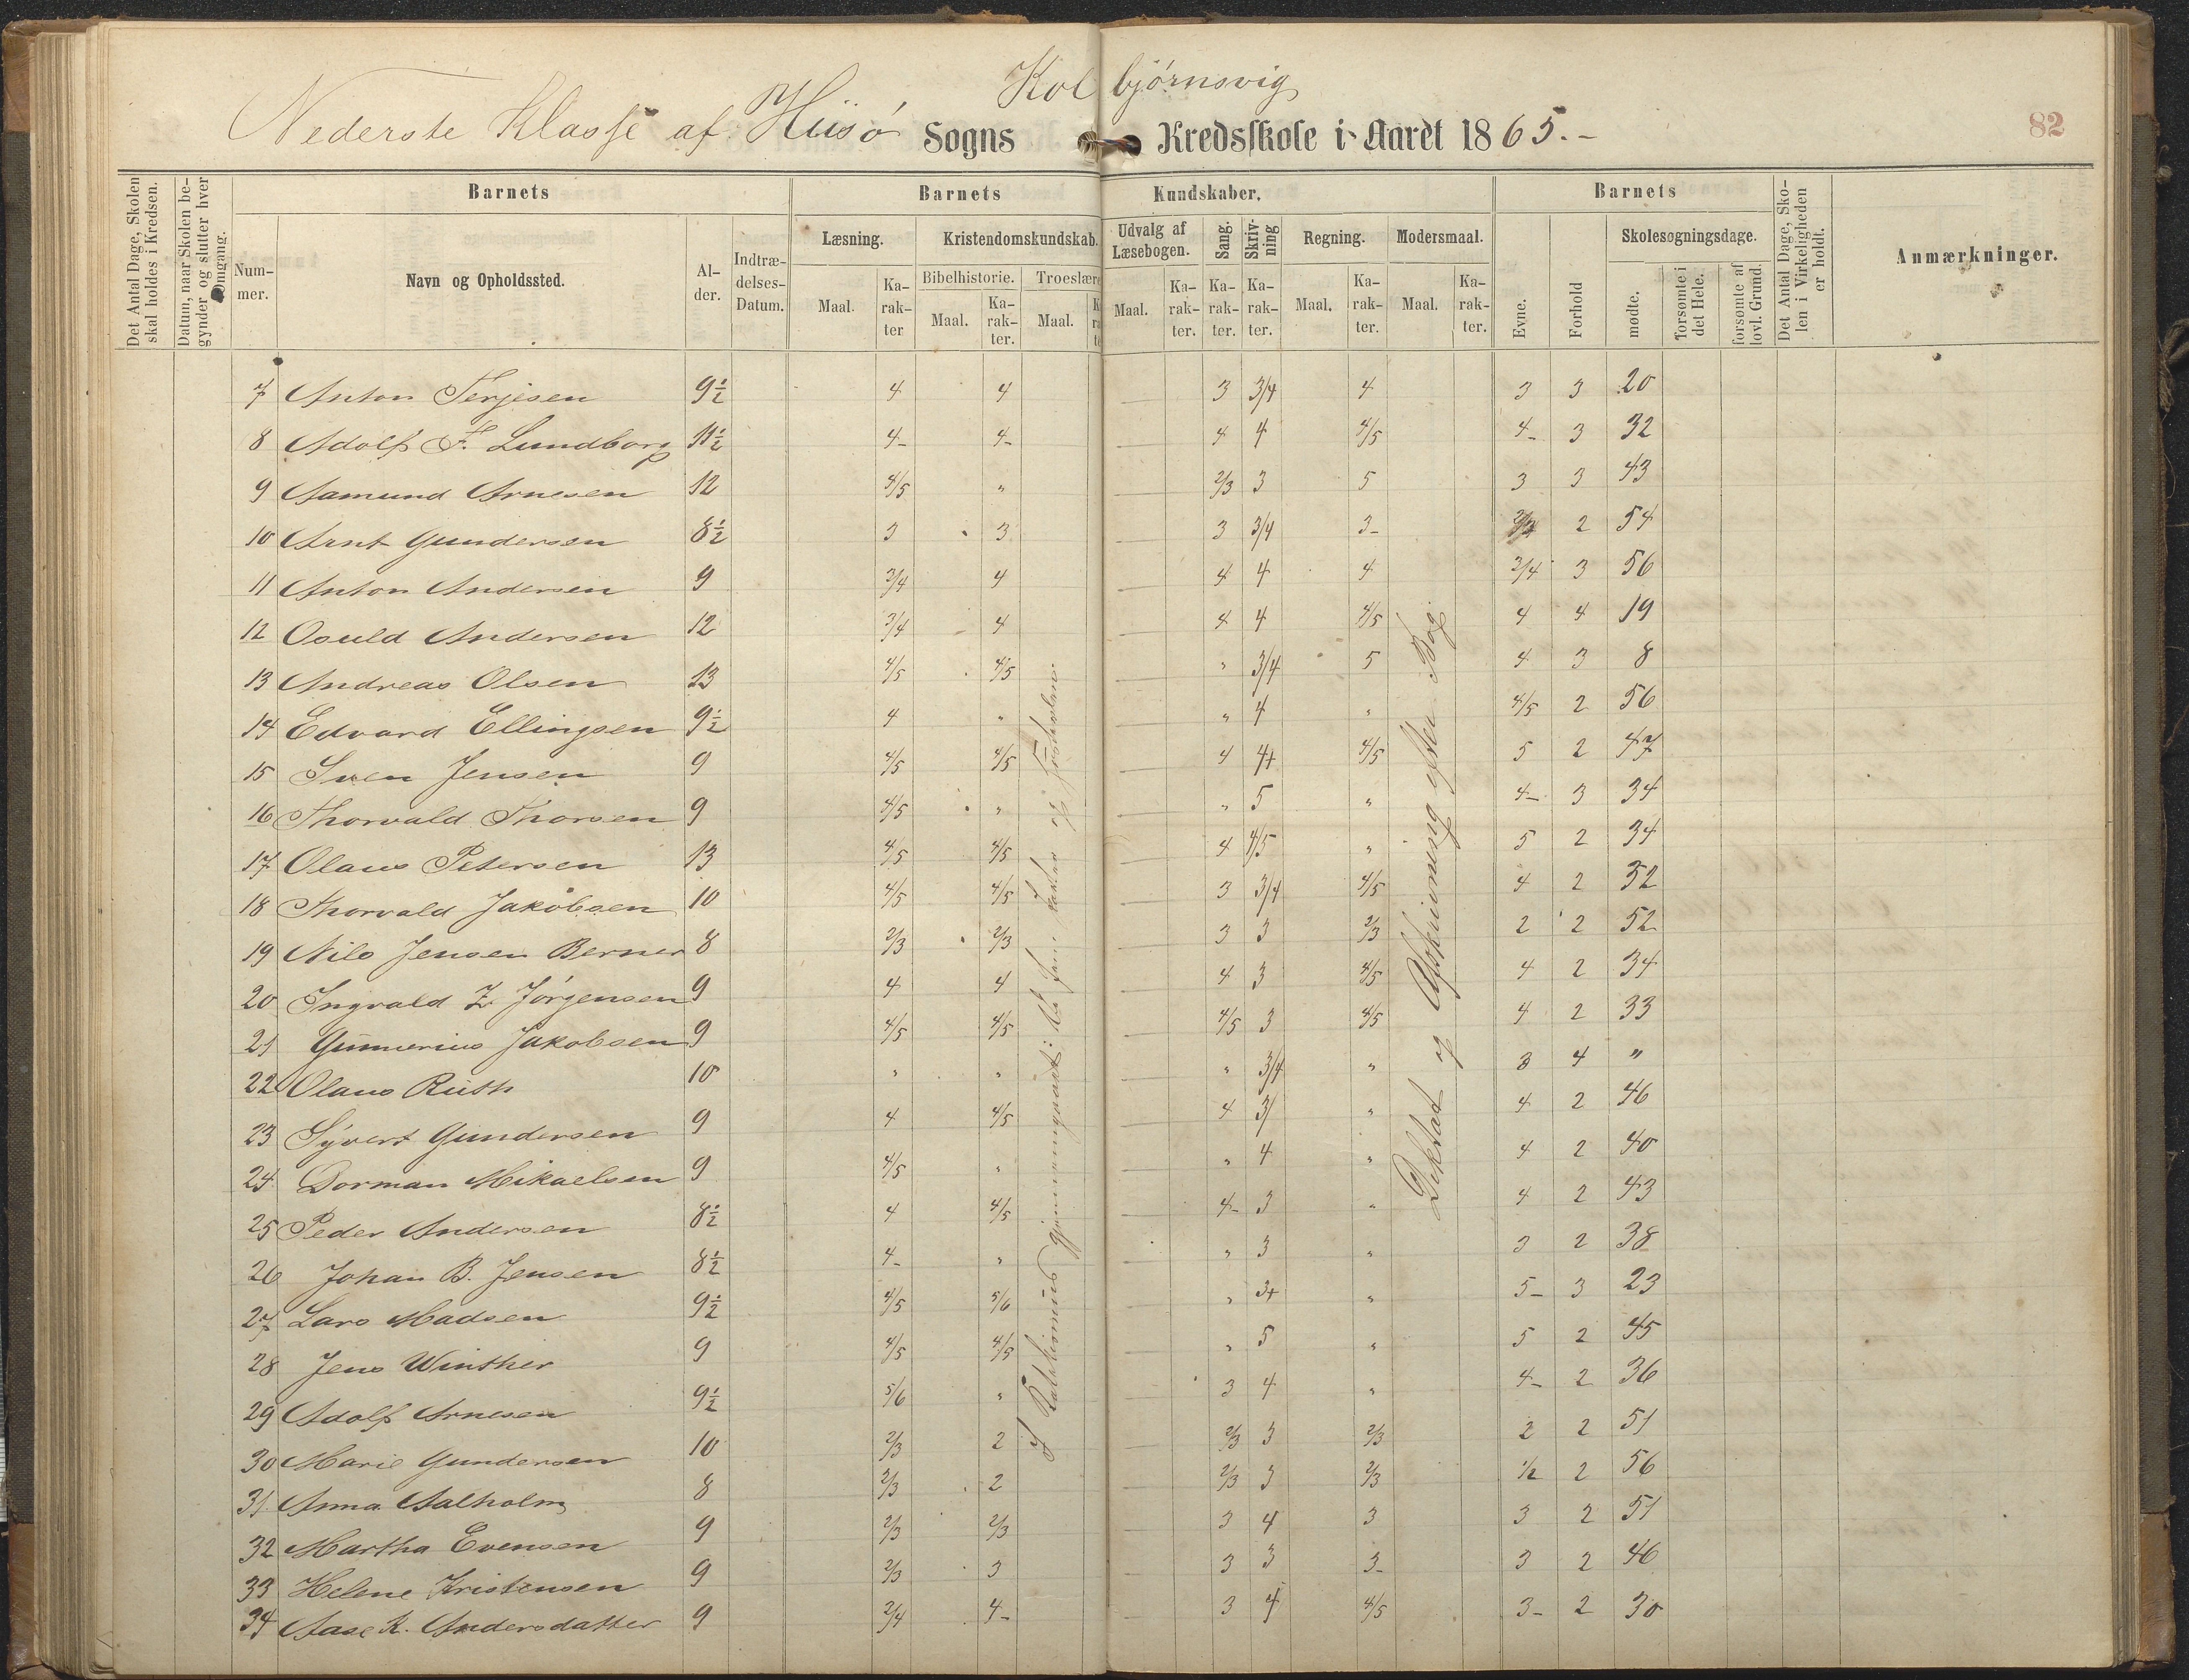 Kolbjørnsvig
Nederste Klasse af Hiisø Sogns Kredsskole i Aaret 1865.-
82
Det Antal Dage, Skolen skal holdes i Kredsen.
Datum, naar Skolen begynder og slutter hver Omgang.
Barnets
Barnets Kundskaber.
Barnets
Det Antal Dage, Skolen i Virkeligheden er holdt.
Anmærkninger.
Nummer. Navn og Opholdssted. Alder. Indtrædelses-Datum.
Læsning. Kristendomskundskab. Udvalg af Læsebogen. Sang. Skrivning Regning. Modersmaal.
Bibelhistorie. Troeslære
Maal. Karakter Maal. Karakter. Maal. Maal. Karakter. Karakter. Karakter. Maal. Karakter. Maal. Karakter.
Evne. Forhold Skolesøgningsdage. mødte. forsømte i det Hele. forsømte af lovl. Grund.
7 Anton Terjesen 9½ 4 4 3 3/4 4 3 3 20
8 Adolf F. Lundborg 11½ 4- 4- 4 4 4/5 4- 3 32
9 Aamund Arnesen 12 4/5 " 2/3 3 5 3 3 43
10 Arnt Gundersen 8½ 3 3 3 3/4 3- 2 54
11 Anton Andersen 9 3/4 4 4 4 4 3/4 3 56
12 Osuld Andersen 12 3/4 4 4 4 4/5 4 4 19
13 Andreas Olsen 13 4/5 4/5 " 3/4 5 4 3 8
14 Edvard Ellingsen 9½ 4 " " 4 " 4/5 2 56
15 Sven Jensen 9 4/5 4/5 4 4+ 4/5 5 2 47
16 Thorvald Thorsen 9 4/5 " " 5 " 4- 3 34
17 Olaus Petersen 13 4/5 4/5 4 4/5 " 5 2 34
18 Thorvald Jakobsen 10 4/5 4/5 3 3/4 4/5 4 2 52
19 Nils Jensen Berner 8 2/3 2/3 3 3 2/3 2 2 52
20 Ingvald Z Jørgensen 9 4 4 4 3 4/5 4 2 34
21 Gunnerius Jakobsen 9 4/5 4/5 4/5 3 4/5 4 2 33
22 Olaus Rüth 10 " " " 3/4 " 3 4 "
23 Syvert Gundersen 9 4 4/5 4 3/ " 4 2 46
24 Dorman Mikaelsen 9 4/5 " " 4 " 4 2 40
25 Peder Andersen 8½ 4 4/5 4- 3 " 4 2 43
26 Johan B. Jensen 8½ 4- " " 3 " 3 2 38
27 Lars Madsen 9½ 4/5 5/6 " 3+ " 5- 3 23
28 Jens Winther 9 4/5 4/5 " 5 " 5 2 45
29 Adolf Arnesen 9½ 5/6 " 3 4 " 4- 2 36
30 Marie Gundersen 10 2/3 2 2/3 3 2/3 2 2 51
31 Anna Aalholm 8 2/3 2 2/3 3 2/3 1/2 2 56
32 Martha Evensen 9 2/3 2/3 3 4 3 3 2 51
33 Helene Kristensen 9 2/3 3 3 3 3- 3 2 46
34 Aase K. Andersdatter 9 3/4 4- 3 4 4/5 3- 2 30
I Katekismus gjennemgaaet: de fem Parter og
Diktat og Afskrivning efter Bog.